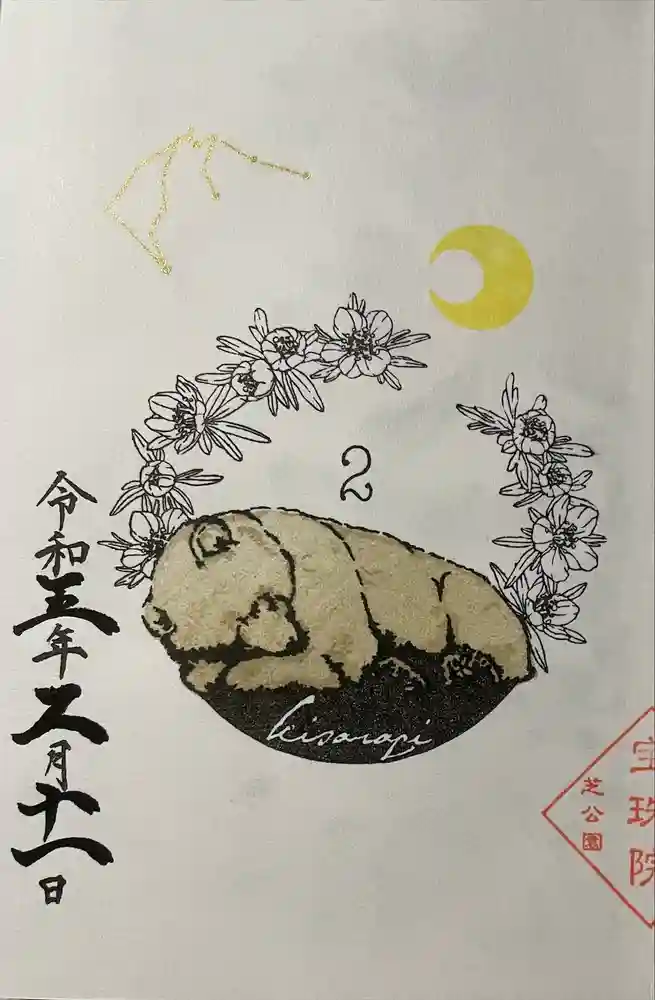 2
kisaragi
令和五年二月十一日
宝珠院
芝公園